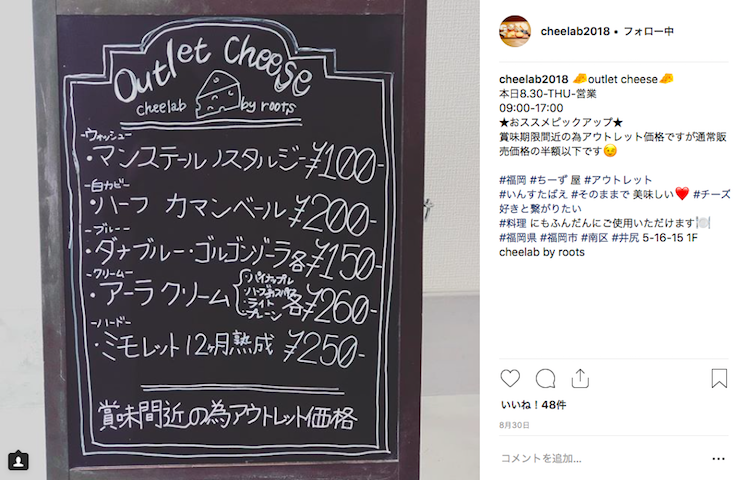 Outlet Cheese
cheelab by roots
-ウォッシュ-
・マンステールノスタルジー ¥100-
-白カビ-
・ハーフ カマンベール ¥200-
-ブルー-
・ダナブルー・ゴルゴンゾーラ各¥150-
-クリーム-
・アーラクリーム
・パイナップル
・ハーブ&スパイス
・ライト
・プレーン
各¥260-
-ハード-
・ミモレット12ヶ月熟成 ¥250-
賞味間近の為アウトレット価格
cheelab2018 • フォロー中
cheelab2018 🧀outlet cheese🧀
本日8.30-THU-営業
09:00-17:00
★おススメピックアップ★
賞味期限間近の為アウトレット価格ですが通常販
売価格の半額以下です😉
#福岡 #ちーず 屋 #アウトレット
#いんすたばえ #そのままで 美味しい❤️ #チーズ
好きと繋がりたい
#料理 にもふんだんにご使用いただけます🍽
#福岡県 #福岡市 #南区 #井尻 5-16-15 1F
cheelab by roots
いいね！48件
8月30日
コメントを追加...